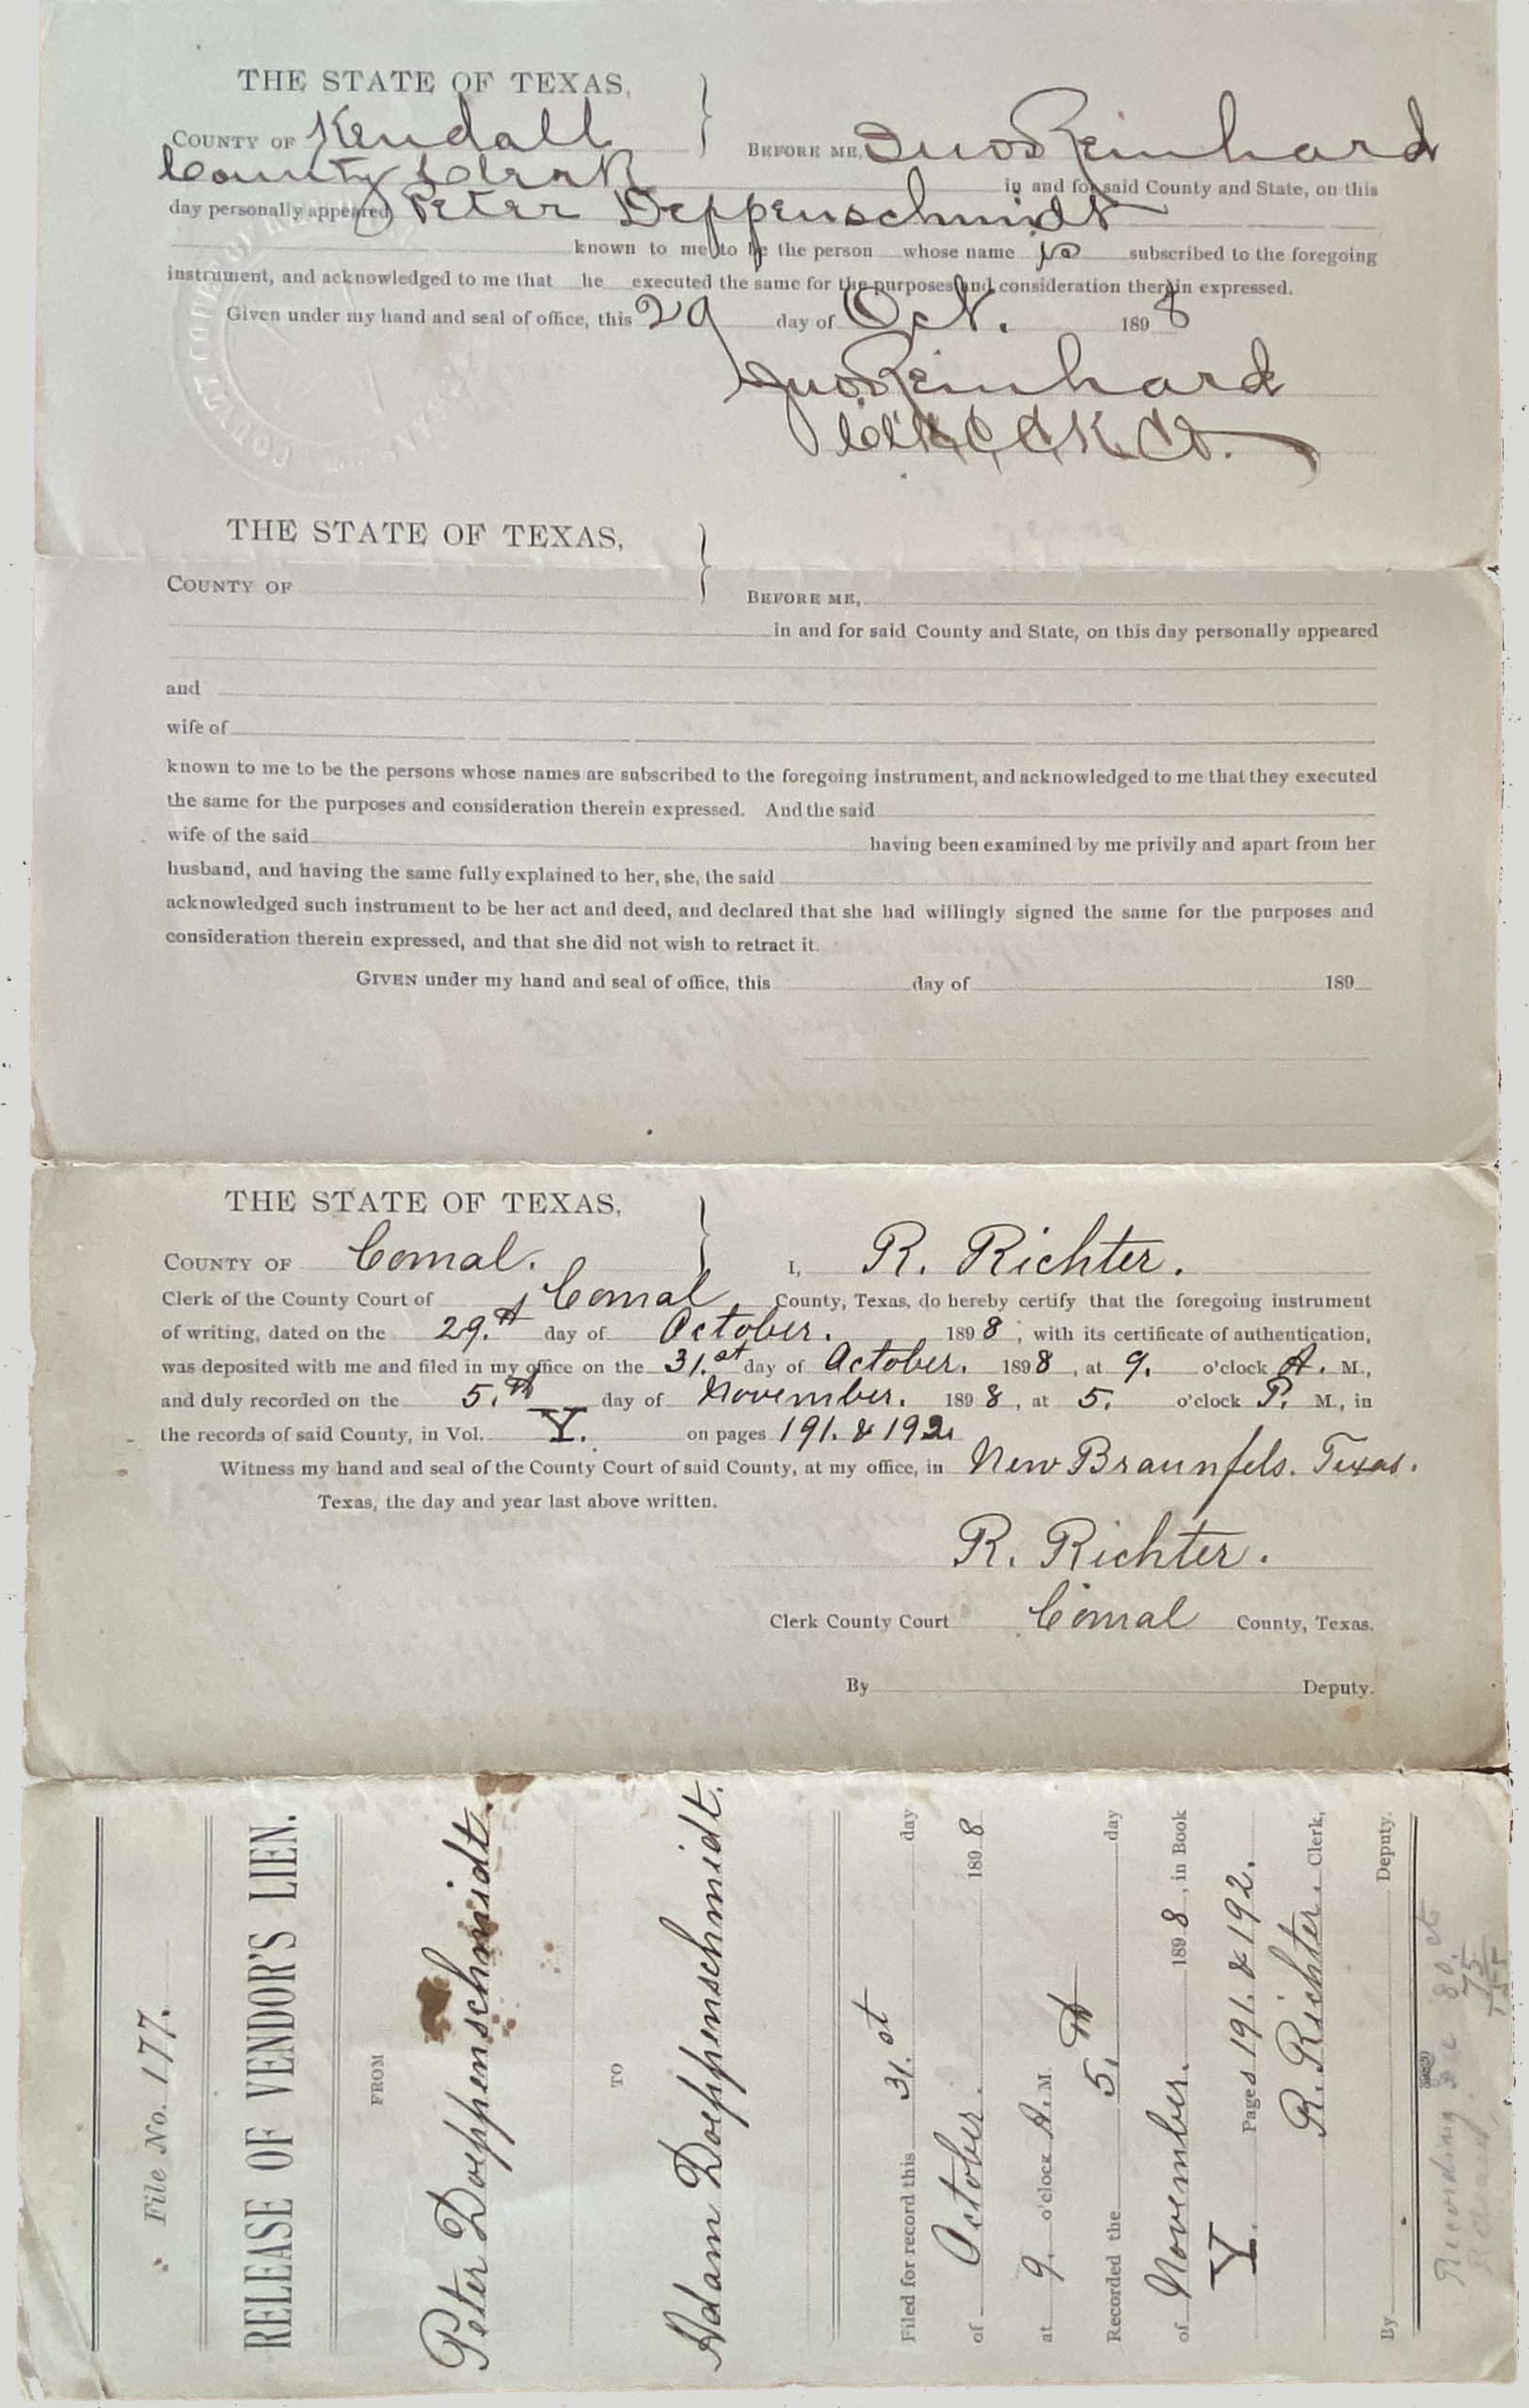 THE STATE OF TEXAS,
COUNTY OF Kendall
BEFORE ME, Jno Reinhard
County Clerk in and for said County and State, on this
day personally appeared Peter Deppenschmidt
known to me to be the person whose name is subscribed to the foregoing
instrument, and acknowledged to me that he executed the same for the purposes and consideration therein expressed.
Given under my hand and seal of office, this 29 day of Oct. 1898
Jno. Reinhard
Clk C. C. K. Co.
THE STATE OF TEXAS,
COUNTY OF
BEFORE ME,
in and for said County and State, on this day personally appeared
and
wife of
known to me to be the persons whose names are subscribed to the foregoing instrument, and acknowledged to me that they executed
the same for the purposes and consideration therein expressed. And the said
wife of the said having been examined by me privily and apart from her
husband, and having the same fully explained to her, she, the said
acknowledged such instrument to be her act and deed, and declared that she had willingly signed the same for the purposes and
consideration therein expressed, and that she did not wish to retract it.
GIVEN under my hand and seal of office, this day of 189
THE STATE OF TEXAS,
COUNTY OF Comal.
I, R. Richter.
Clerk of the County Court of Comal County, Texas, do hereby certify that the foregoing instrument
of writing, dated on the 29.th day of October. 1898; with its certificate of authentication,
was deposited with me and filed in my office on the 31.st day of October. 1898, at 9. o'clock A. M.,
and duly recorded on the 5.th day of November. 1898, at 5. o'clock P. M., in
the records of said County, in Vol. Y. on pages 191. & 192.
Witness my hand and seal of the County Court of said County, at my office, in New Braunfels. Texas.
Texas, the day and year last above written.
R. Richter.
Clerk County Court Comal County, Texas.
By Deputy.
File No. 177.
RELEASE OF VENDOR'S LIEN.
FROM
Peter Doeppenschmidt.
TO
Adam Doeppenschmidt.
Filed for record this 31.st day
of October. 1898
at 9. o'clock A. M.
Recorded the 5.th day
of November. 1898, in Book
Y. Pages 191. & 192.
R. Richter. Clerk,
By Deputy.
Recording 80 ct
75
155